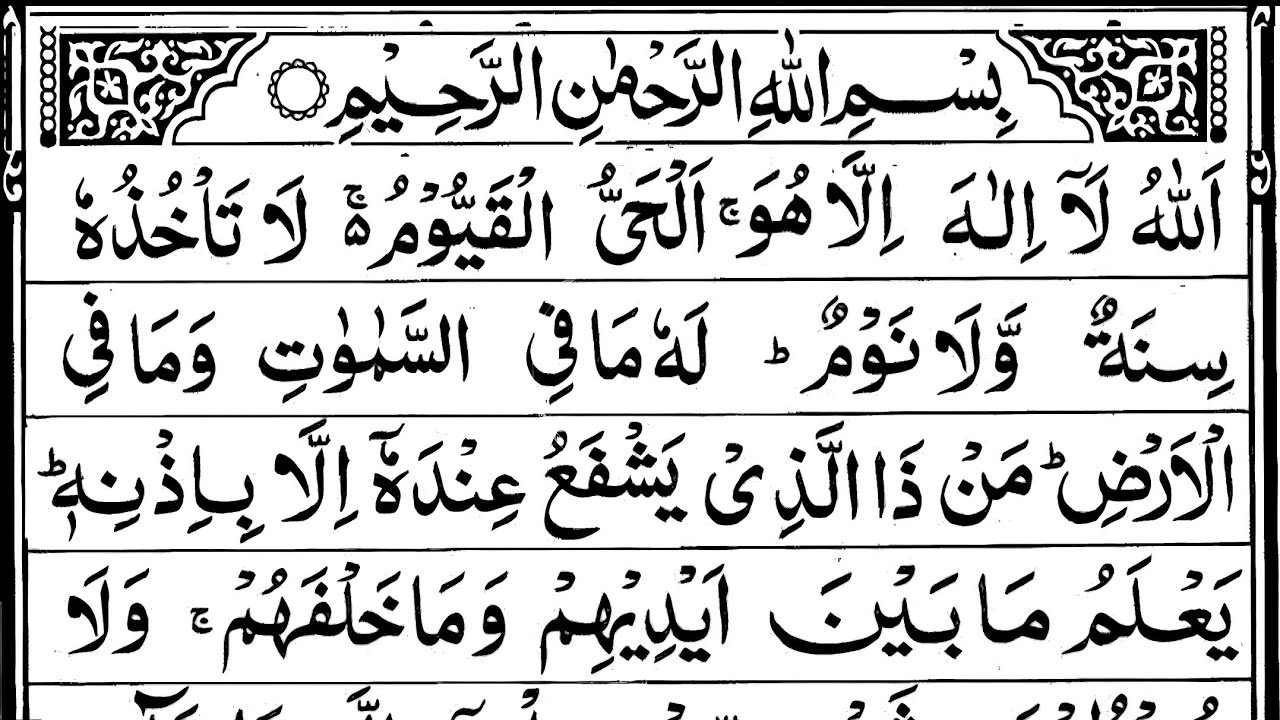 بِسْمِ اللّٰهِ الرَّحْمٰنِ الرَّحِيْمِ ۝
اَللّٰهُ لَاۤ اِلٰهَ اِلَّا هُوَ ۚ اَلْحَیُّ الْقَيُّوْمُ ۬ۚ لَا تَاْخُذُهٗ
سِنَةٌ وَّلَا نَوْمٌ ؕ لَهٗ مَا فِی السَّمٰوٰتِ وَمَا فِی
الْاَرْضِ ؕ مَنْ ذَا الَّذِیْ يَشْفَعُ عِنْدَهٗۤ اِلَّا بِاِذْنِهٖ ؕ
يَعْلَمُ مَا بَيْنَ اَيْدِيْهِمْ وَمَا خَلْفَهُمْ ۚ وَلَا